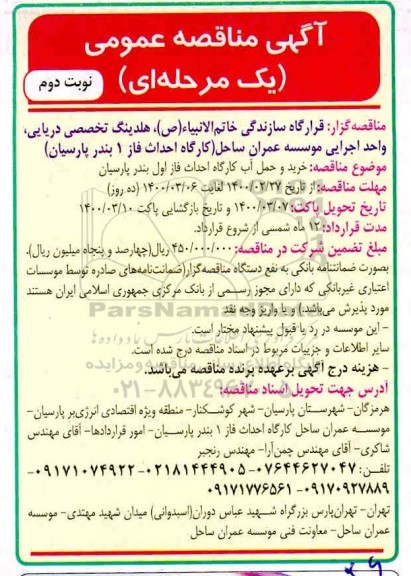 آگهی مناقصه عمومی
(یک مرحله‌ای)
نوبت دوم
مناقصه‌گزار: قرارگاه سازندگی خاتم‌الانبیاء(ص)، هلدینگ تخصصی دریایی،
واحد اجرایی موسسه عمران ساحل(کارگاه احداث فاز ۱ بندر پارسیان)
موضوع مناقصه: خرید و حمل آب کارگاه احداث فاز اول بندر پارسیان
مهلت مناقصه: از تاریخ ۱۴۰۰/۰۲/۲۷ لغایت ۱۴۰۰/۰۳/۰۶ (ده روز)
تاریخ تحویل پاکت: ۱۴۰۰/۰۳/۰۷ و تاریخ بازگشایی پاکت ۱۴۰۰/۰۳/۱۰
مدت قرارداد: ۱۲ ماه شمسی از شروع قرارداد.
مبلغ تضمین شرکت در مناقصه: ۴۵۰/۰۰۰/۰۰۰ ریال(چهارصد و پنجاه میلیون ریال).
بصورت ضمانتنامه بانکی به نفع دستگاه مناقصه‌گزار(ضمانت‌نامه‌های صادره توسط موسسات
اعتباری غیربانکی که دارای مجوز رسمی از بانک مرکزی جمهوری اسلامی ایران هستند
مورد پذیرش می‌باشد.) و یا واریز وجه نقد
- این موسسه در رد یا قبول پیشنهاد مختار است.
سایر اطلاعات و جزییات مربوط در اسناد مناقصه درج شده است.
- هزینه درج آگهی برعهده برنده مناقصه می‌باشد.
آدرس جهت تحویل اسناد مناقصه:
هرمزگان- شهرستان پارسیان- شهر کوشکنار- منطقه ویژه اقتصادی انرژی‌بر پارسیان-
موسسه عمران ساحل کارگاه احداث فاز ۱ بندر پارسیان- امور قراردادها- آقای مهندس
شاکری- آقای مهندس چمن‌آرا- مهندس رنجبر
تلفن: ۰۷۶۴۴۶۲۷۰۴۷-۰۲۱۸۱۴۴۴۹۰۵-۰۹۱۷۱۰۷۴۹۲۲-
۰۹۱۷۰۹۲۷۸۸۹-۰۹۱۷۱۷۷۶۵۶۱
تهران- تهران‌پارس بزرگراه شهید عباس دوران(اسبدوانی) میدان شهید مهتدی- موسسه
عمران ساحل- معاونت فنی موسسه عمران ساحل